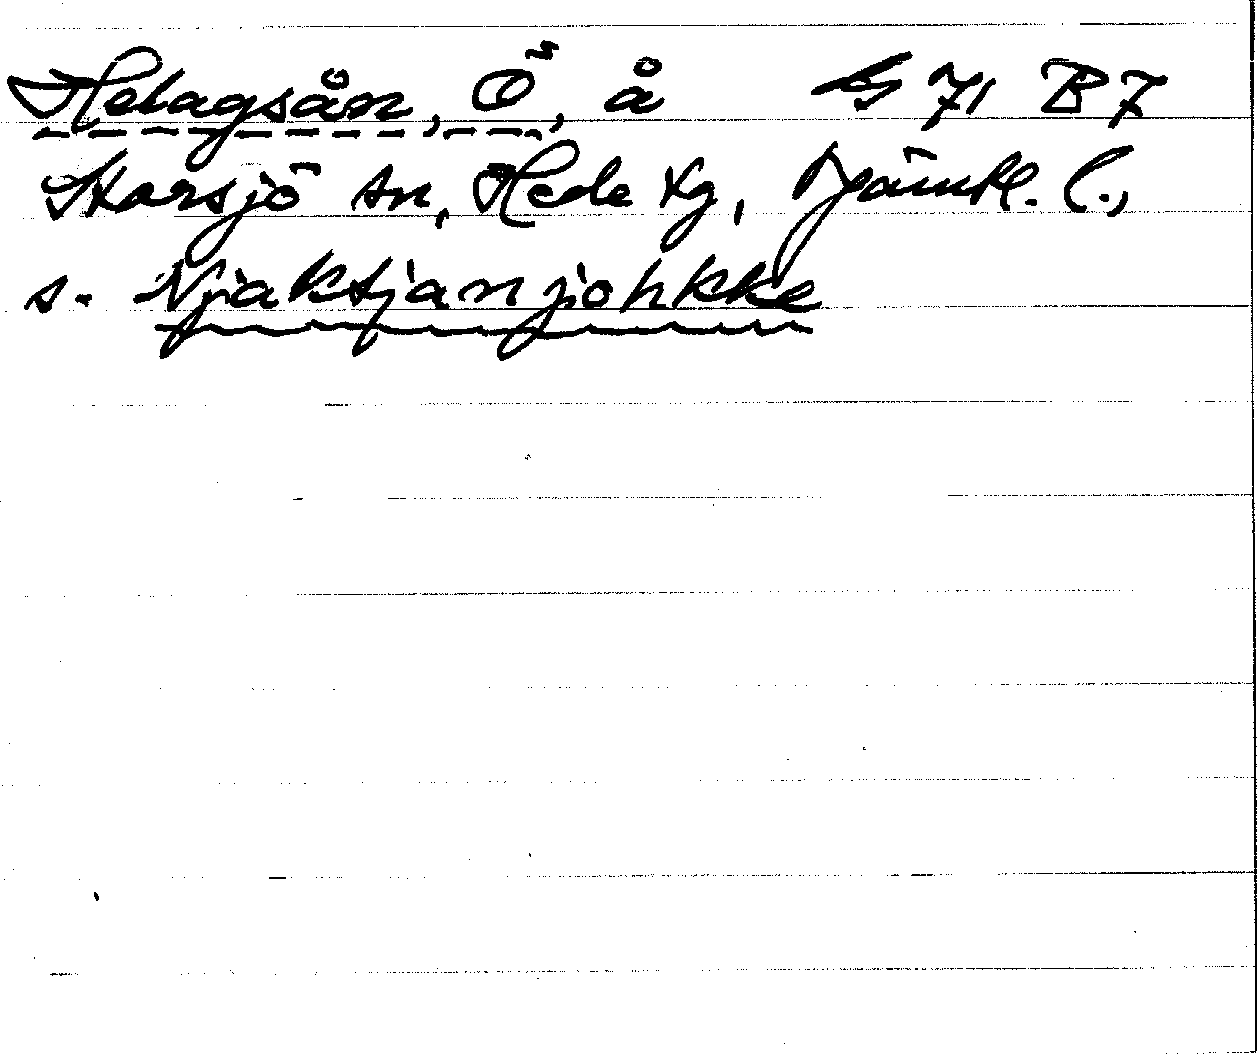 Helagsån, Ö, å G 71 B7
Storsjö sn, Hede tg, Jämtl. l.,
s. Njaktjanjohkke